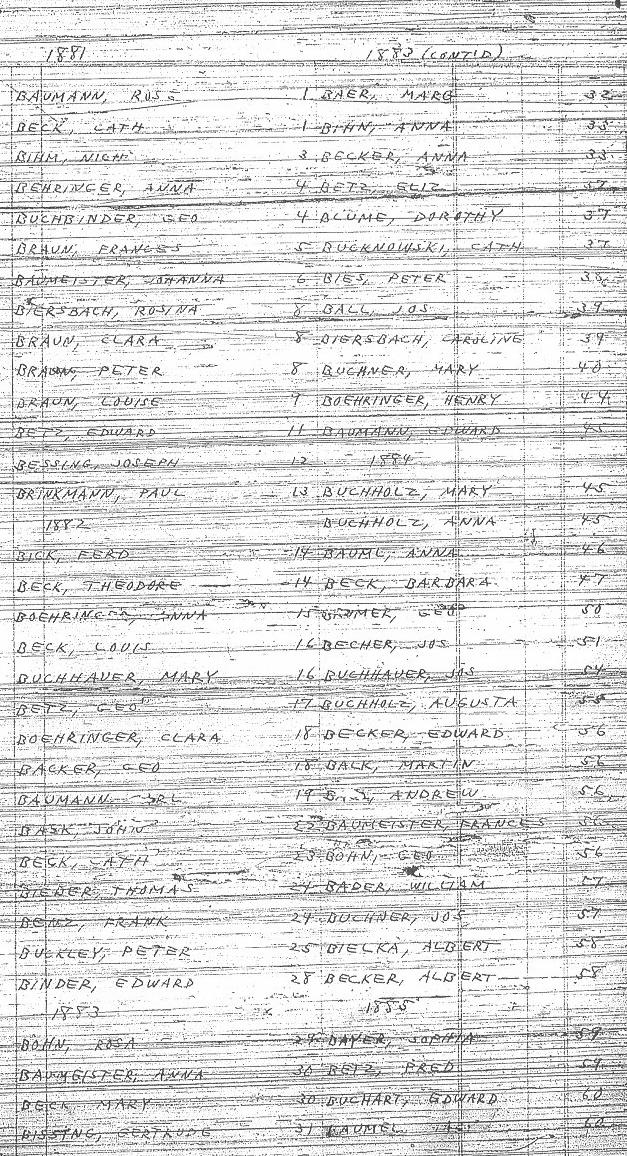 1881
BAUMANN, ROSE 1
BECK, CATH 1
BIHM, NICH 3
BEHRINGER, ANNA 4
BUCHBINDER, GEO 4
BRAUN, FRANCES 5
BAUMEISTER, JOHANNA 6
BIERSBACH, ROSINA 8
BRAUN, CLARA 8
BRAUN, PETER 8
BRAUN, LOUISE 9
BETZ, EDWARD 11
BESSING, JOSEPH 12
BRINKMANN, PAUL 13
1882
BICK, FERD 14
BECK, THEODORE 14
BOEHRINGER, ANNA 15
BECK, LOUIS 16
BUCHHAUER, MARY 16
BETZ, GEO 17
BOEHRINGER, CLARA 18
BACKER, GEO 18
BAUMANN, 19
BASK, JOHN
BECK, CATH 23
BIEDER, THOMAS 24
BENZ, FRANK 24
BUCKLEY, PETER 25
BINDER, EDWARD 28
1883
BOHN, ROSA 29
BAUMEISTER, ANNA 30
BECK, MARY 30
BISSING, GERTRUDE 31
1883 (CONT'D)
BAER, MARG 32
BIHN, ANNA 33
BECKER, ANNA 33
BETZ, ELIZ 37
BLUME, DOROTHY 37
BUCKNOWSKI, CATH 37
BIES, PETER 38
BALL, JOS 39
BIERSBACH, CAROLINE 39
BUCHNER, MARY 40
BOEHRINGER, HENRY 44
BAUMANN, EDWARD 45
1884
BUCHHOLZ, MARY 45
BUCHHOLZ, ANNA 45
BAUML, ANNA 46
BECK, BARBARA 47
GEO 50
BECHER, JOS 51
BUCHHAUER, JOS 54
BUCHHOLZ, AUGUSTA 55
BECKER, EDWARD 56
BALK, MARTIN 56
ANDREW 56
BAUMEISTER, FRANCES 56
BOHN, GEO 56
BADER, WILLIAM 57
BUCHNER, JOS 57
BIELKA, ALBERT 58
BECKER, ALBERT 58
1885
BAYER, SOPHIA 59
BETZ, FRED 59
BUCHART, EDWARD 60
BAUMEL 60